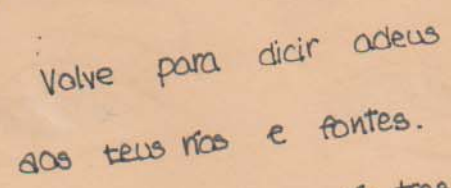 Volve para dicir adeus
aos teus ríos e fontes.